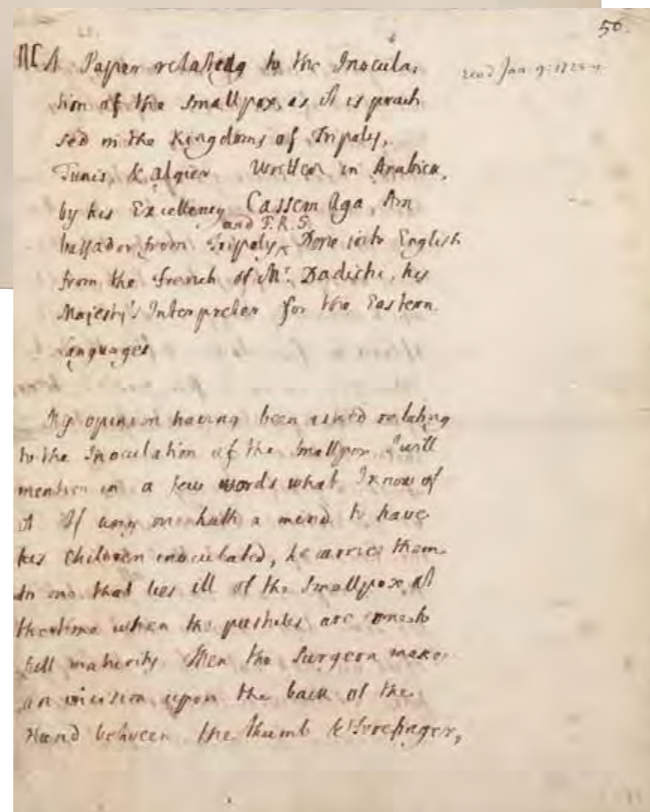 50.
A Paper relating to the Inocula-
read Jan. 9.
tion of the Smallpox, as it is pract-
sed in the Kingdoms of Tripoly,
Tunis, & Algier. Written in Arabick,
by his Excellency Cassem Aga, Am
and F.R.S.
bassador from Trippoly, Done into English
from the French of Mr. Dadichi, his
Majesty's Interpreter for the Eastern.
Languages
My opinion having been asked relating
to the Inoculation of the Smallpox I will
mention in a few words what I know of
it If any one hath a mind to have
his Children inoculated, he carries them
to one that lies ill of the Smallpox, at
the time when the pustules are come to
full maturity. Then the Surgeon makes
an incision upon the back of the
Hand between the thumb & forefinger,